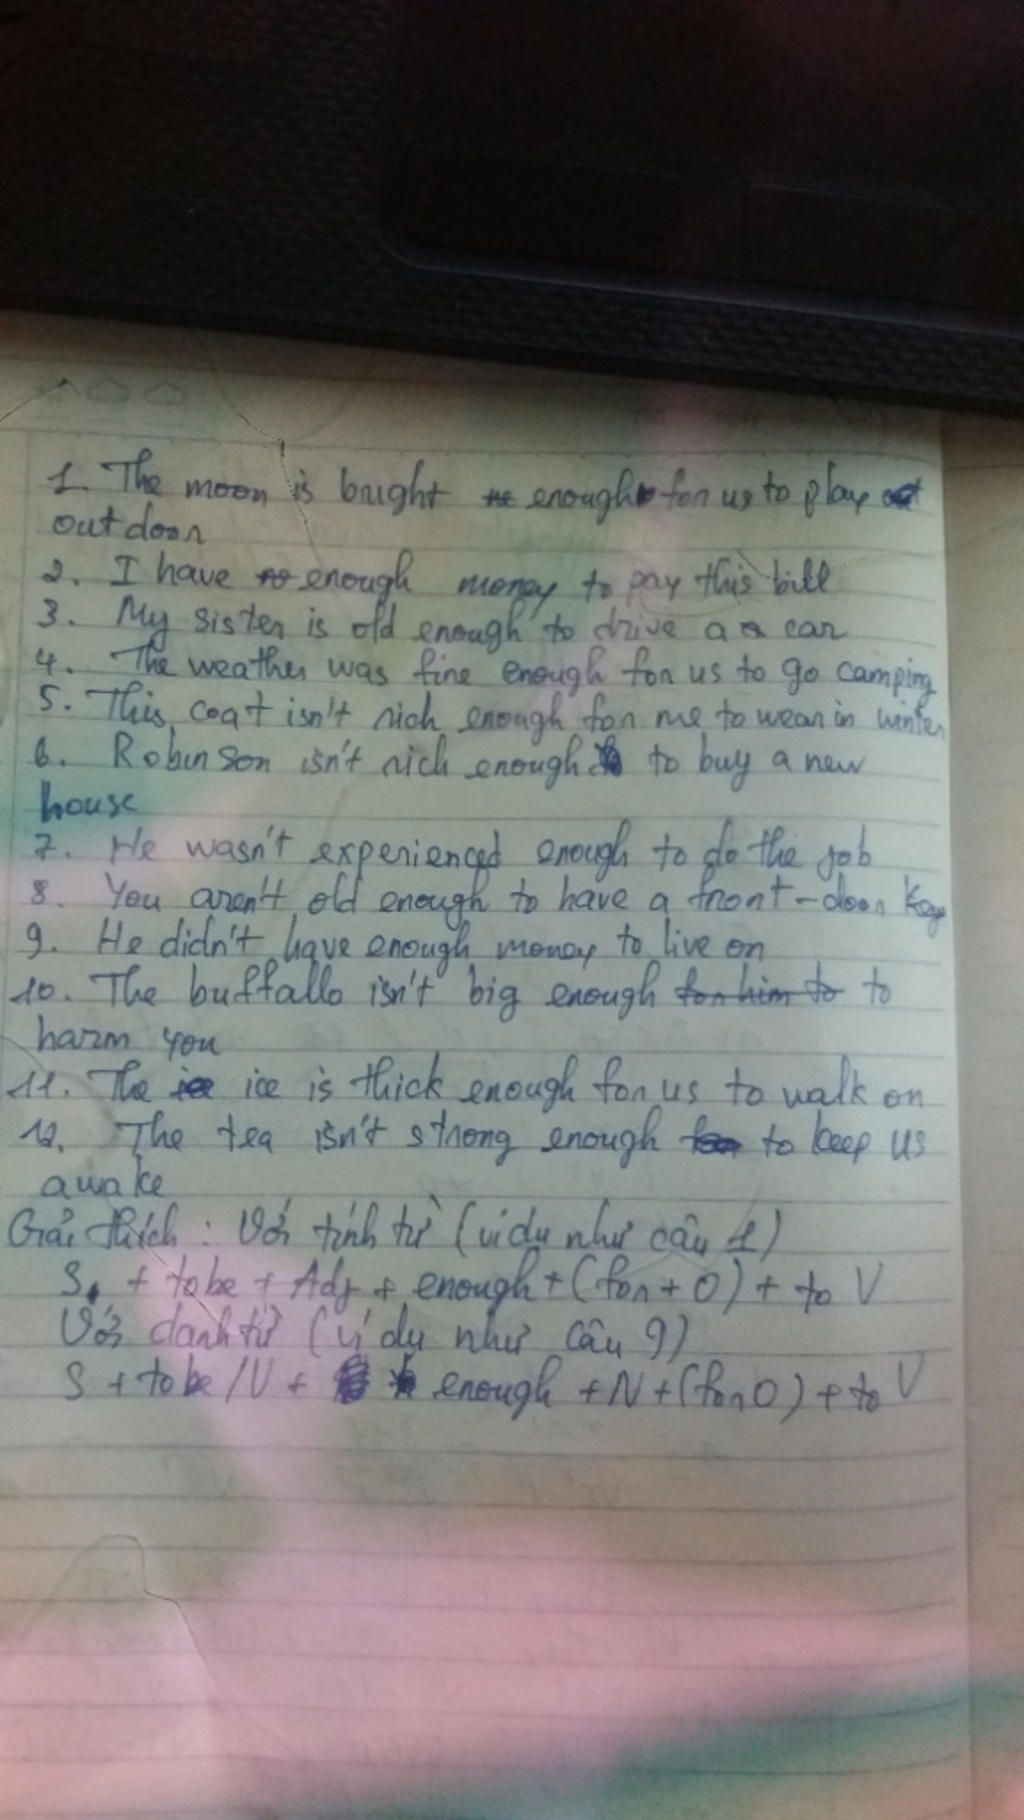 1. The moon is bright enough for us to play
outdoor
2. I have enough money to pay this bill
3. My sister is old enough to drive a car
4. The weather was fine enough for us to go camping
5. This coat isn't rich enough for me to wear in winter
6. Robinson isn't rich enough to buy a new
house
7. He wasn't experienced enough to do the job
8. You aren't old enough to have a front-door key
9. He didn't have enough money to live on
10. The buffallo isn't big enough for him to to
harm you
11. The ice is thick enough for us to walk on
12. The tea isn't strong enough to keep us
awake
Giải thích: Với tính từ (ví dụ như câu 1)
S + tobe + Adj + enough + (for + O) + to V
Với danh từ (ví dụ như câu 9)
S + tobe /V + enough + N + (for O) + to V